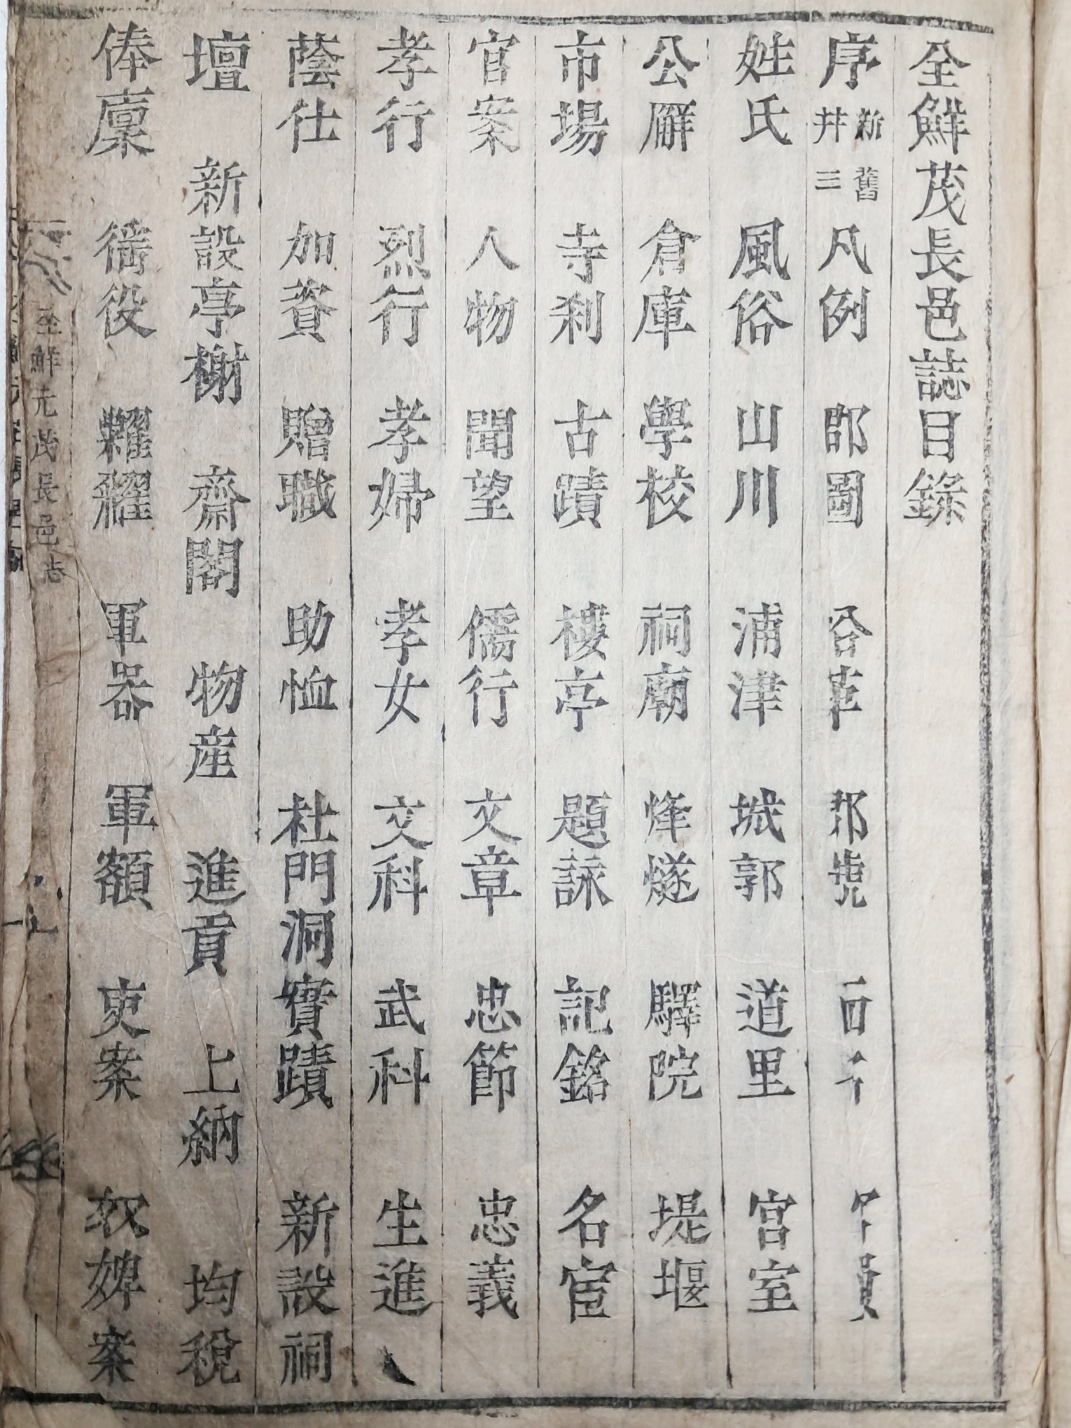 全鮮茂長邑誌目錄
序 新舊 幷三 凡例 郡圖 沿革 邦號 官員
姓氏 風俗 山川 浦津 城郭 道里 宮室
公廨 倉庫 學校 祠廟 烽燧 驛院 堤堰
市場 寺刹 古蹟 樓亭 題詠 記銘 名宦
官案 人物 聞望 儒行 文章 忠節 忠義
孝行 烈行 孝婦 孝女 文科 武科 生進
蔭仕 加資 贈職 助恤 杜門洞實蹟 新設祠
壇 新設亭榭 齋閣 物産 進貢 上納 均稅
俸廩 衙役 糶糴 軍器 軍額 吏案 奴婢案
全鮮 茂長邑志